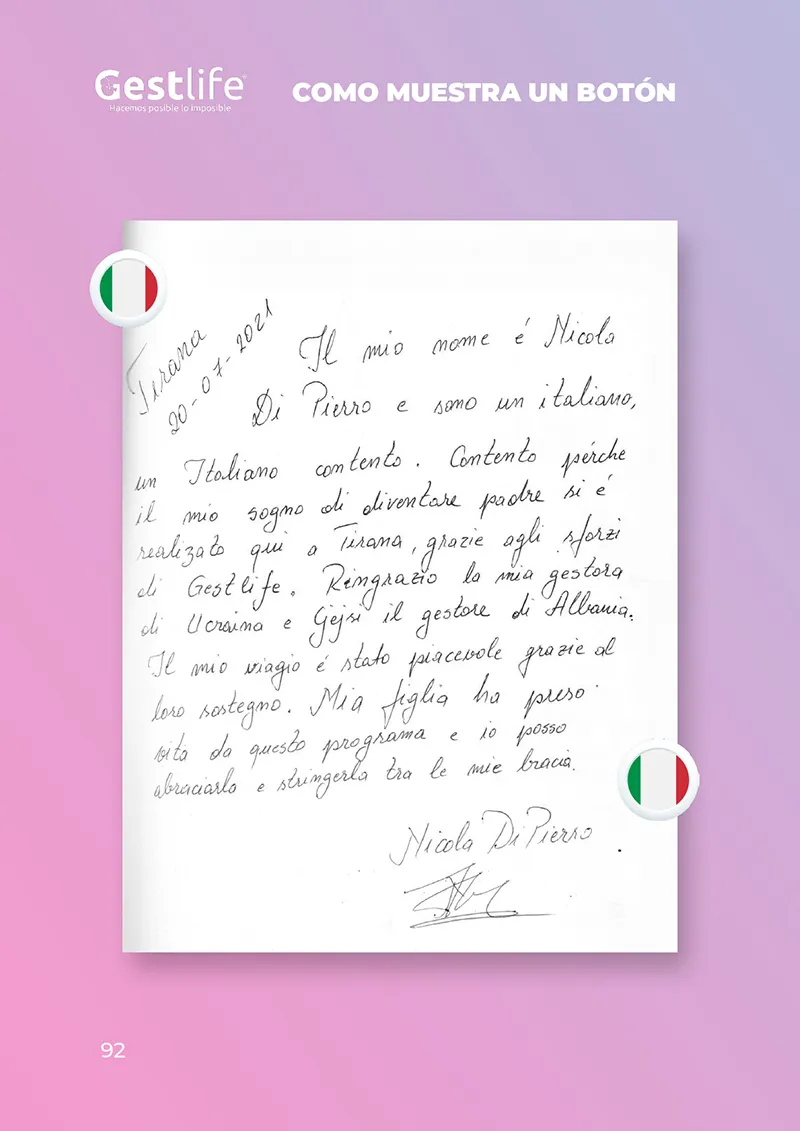 Gestlife
Hacemos posible lo imposible
COMO MUESTRA UN BOTÓN
Tirana
20-07-2021
Il mio nome é Nicola
Di Pierro e sono un italiano,
un Italiano contento. Contento pérche
il mio sogno di diventare padre si é
realizato qui a Tirana, grazie agli sforzi
di Gestlife. Ringrazio la mia gestora
di Ucraina e Gejsi il gestore di Albania.
Il mio viagio é stato piacevole grazie al
loro sostegno. Mia figlia ha preso
vita da questo programa e io posso
abraciarla e stringerla tra le mie bracia.
Nicola Di Pierro
92